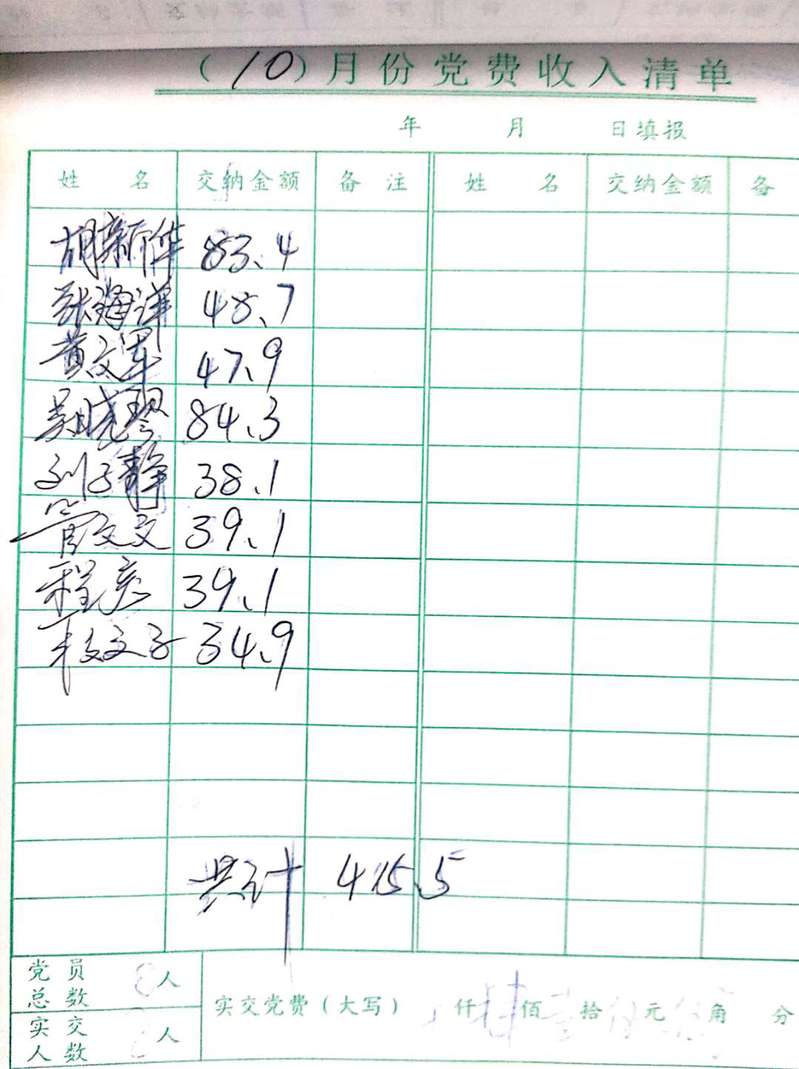 (10)月份党费收入清单
年 月 日填报
姓 名 交纳金额 备 注 姓 名 交纳金额 备
胡新华 83.4
张海洋 48.7
黄文军 47.9
吴晓琴 84.3
刘子静 38.1
管文文 39.1
程彦 39.1
段文子 34.9
共计 415.5
党员总数 人
实交党费(大写) 仟 佰 拾 元 角 分
实交人数 人